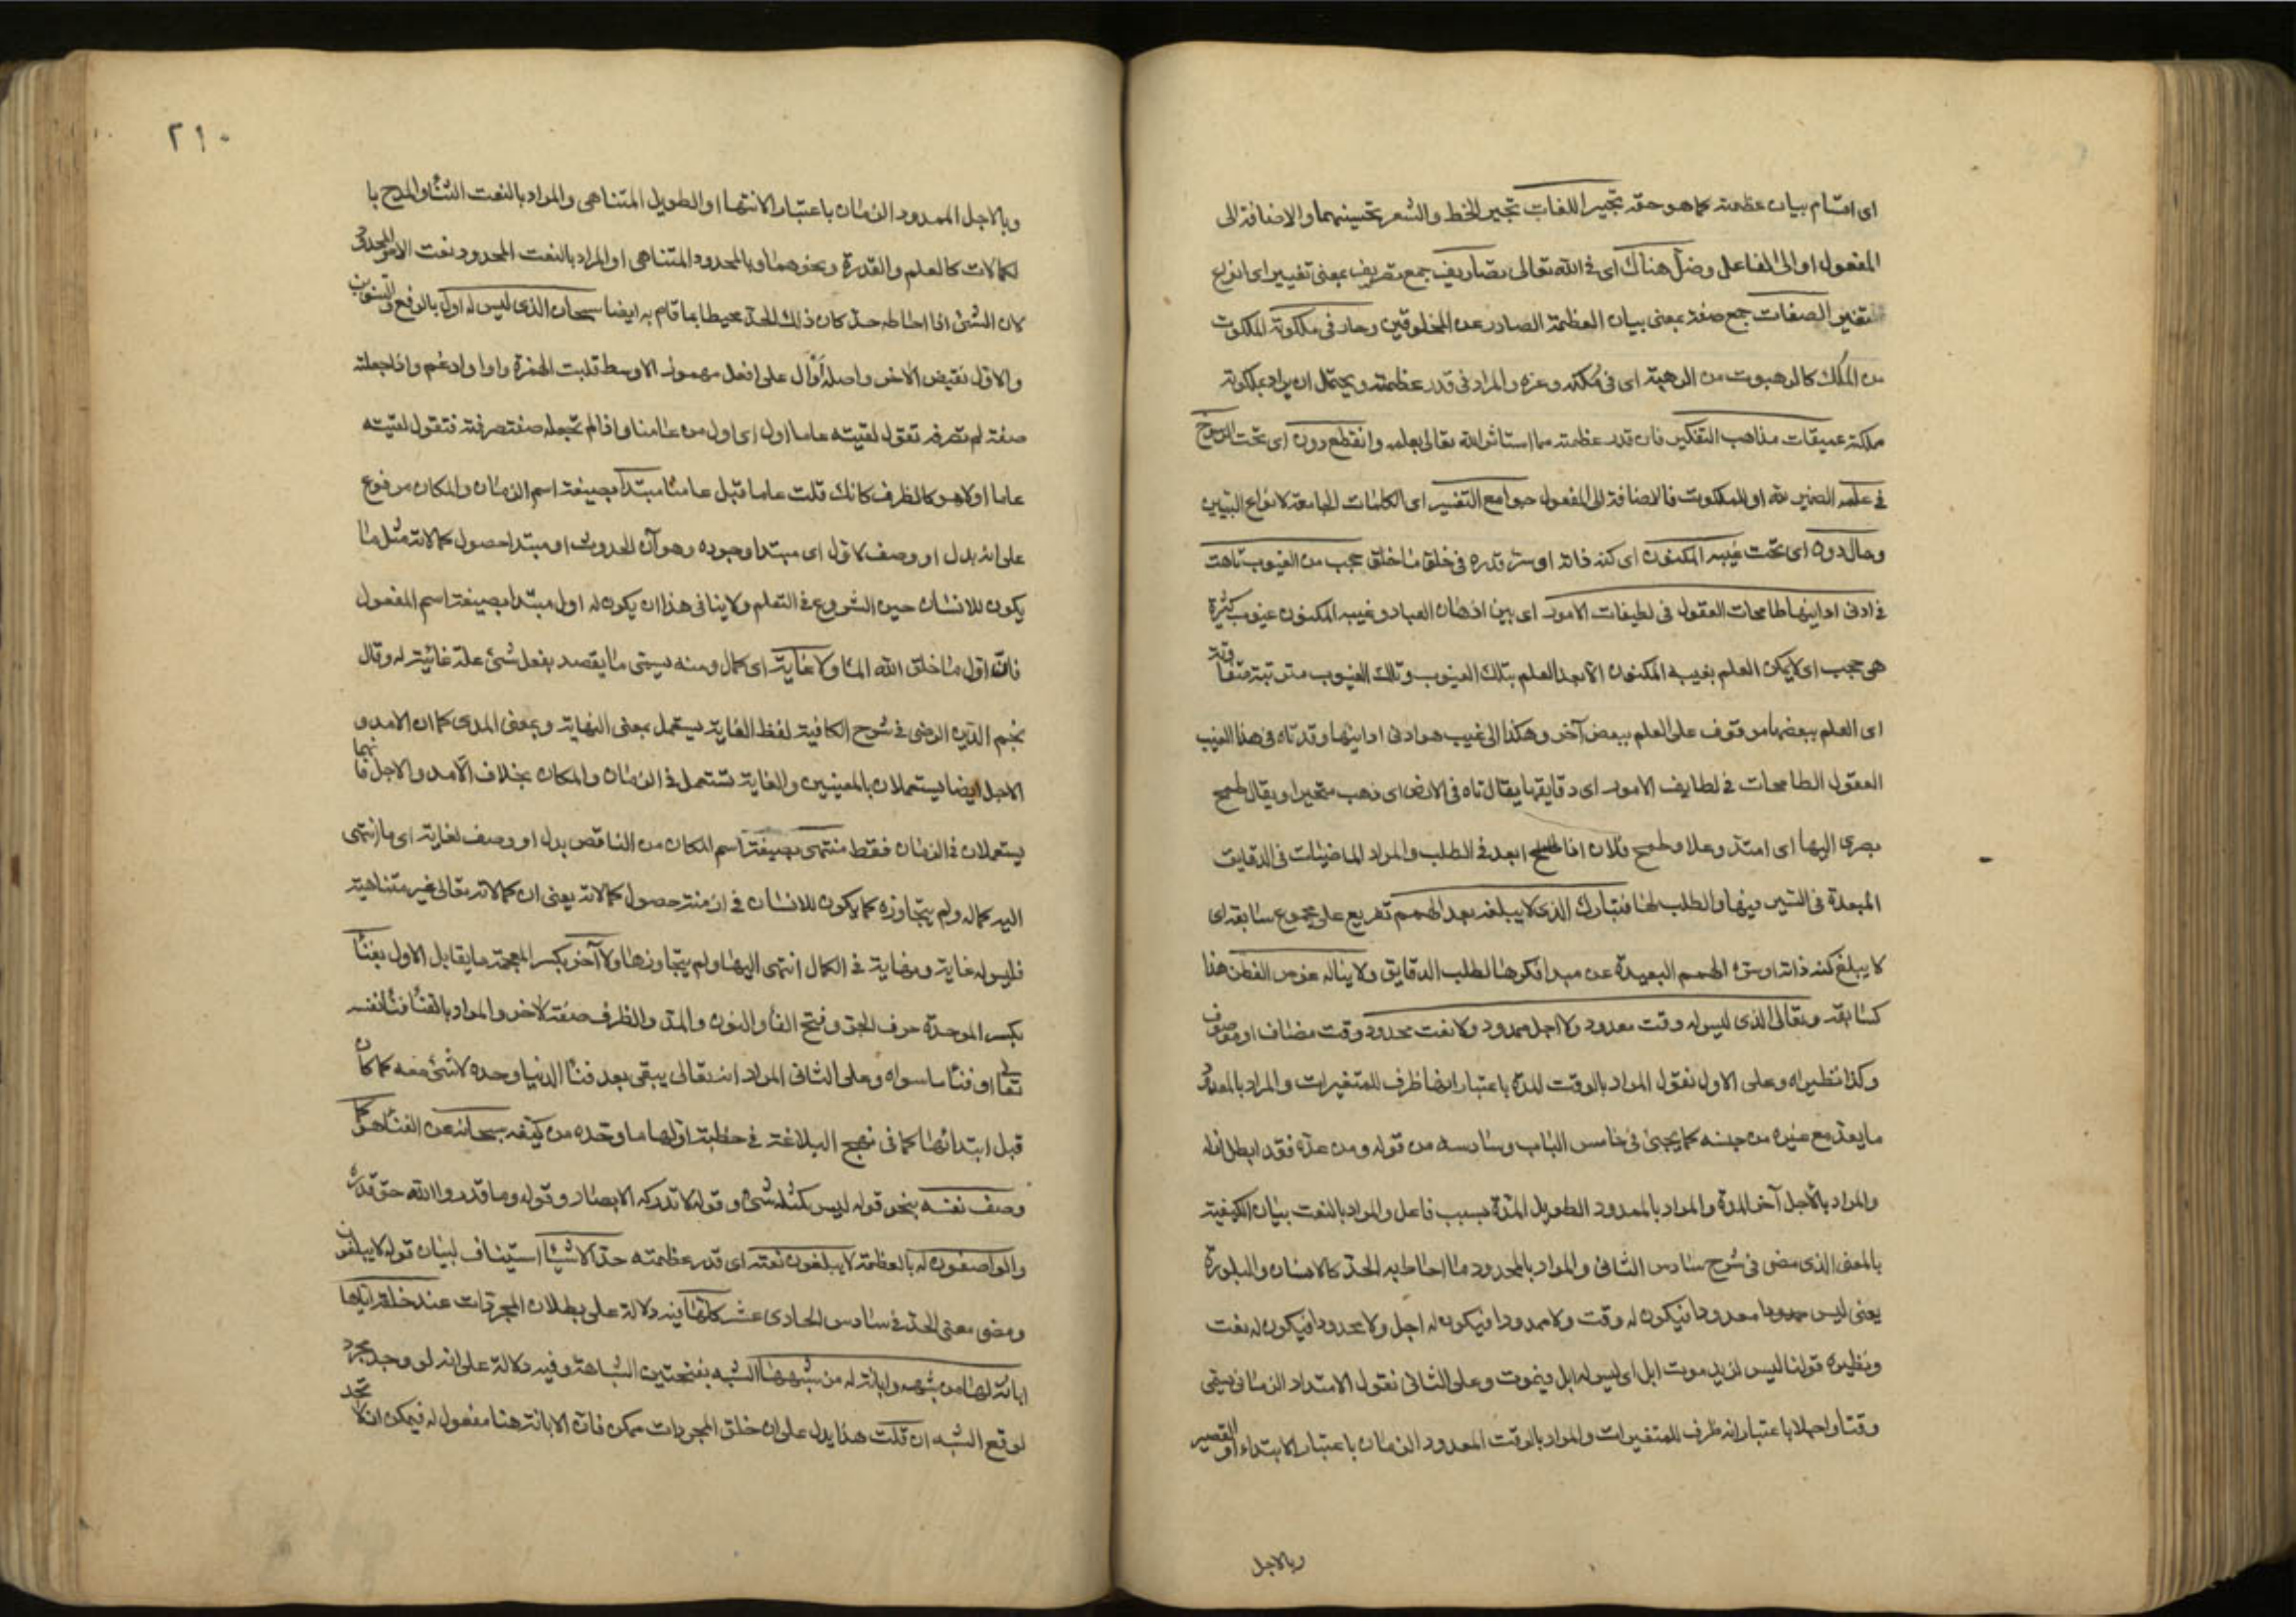 اى اقسام بيان عظمته كما هو حقه تحبير اللغات تحبير الخط والشعر تحسينهما والاضافة الى
المفعول او الى الفاعل وضل هناك اى فى الله تعالى تصاريف جمع تصريف بمعنى تغيير اى انواع
تغيير الصفات جمع صفة بمعنى بيان العظمة الصادر عن المخلوقين وحار فى ملكوته الملكوت
من الملك كالرهبوت من الرهبة اى فى مُلكه وعزه والمراد فى قدر عظمته ويحتمل ان يراد بملكوته
ملكة عميقات مذاهب التفكير فان قدر عظمته مما استاثر الله تعالى بعلمه وانقطع دون اى تحت الرسوخ
فى علمه الضمير لله او للملكوت فالاضافة الى المفعول جوامع التفسير اى الكلمات الجامعة لانواع التبيين
وحال دون اى تحت غيبه المكنون اى كنه ذاته او سر قدره فى خلق ما خلق حجب من الغيوب تاهت
فى ادنى ادانيها طامحات العقول فى لطيفات الامور اى بين اذهان العباد وغيبه المكنون غيوب كثيرة
هى حجب اى لا يمكن العلم بغيبه المكنون الا بعد العلم بتلك الغيوب وتلك الغيوب مترتبة متفاوتة
اى العلم ببعضها موقوف على العلم ببعض آخر وهكذا الى غيب هو ادنى ادانيها وقد تاه فى هذا الغيب
العقول الطامحات فى لطايف الامور اى دقايقها يقال تاه فى الارض اى ذهب متحيرا ويقال طمح
بصرى اليها اى امتد وعلا وطمح فلان اذا ابعد فى الطلب والمراد الماضيات فى الدقايق
المبعدة فى السير فيها والطلب لها فتبارك الذى لا يبلغه بعد الهمم تفريع على مجموع سابقه اى
لا يبلغ كنه ذاته او سره الهمم البعيدة عن مبدا فكرها لطلب الدقايق ولا يناله غوص الفطن هذا
كسابقه وتعالى الذى ليس له وقت معدود ولا اجل ممدود ولا نعت محدود وقت مضاف او موصوف
وكذا نظيراه وعلى الاول نقول المراد بالوقت المدة باعتبار انها ظرف للمتغيرات والمراد بالمعدود
ما يعد مع غيره من جنسه كما يجيئ فى خامس الباب وسادسه من قوله ومن عده فقد ابطل ازله
والمراد بالاجل آخر المدة والمراد بالممدود الطويل المدة بسبب فاعل والمراد بالنعت بيان الكيفية
بالمعنى الذى مضى فى شرح سادس الثانى والمراد بالمحدود ما احاط به الحد كالانسان والبلورة
يعنى ليس معدودا فيكون له وقت ولا ممدودا فيكون له اجل ولا محدودا فيكون له نعت
ونظيره قولنا ليس لزيد موت ابل اى ليس له ابل فيموت وعلى الثانى نقول الامتداد الزمانى يسمى
وقتا واجلا باعتبار انه ظرف للمتغيرات والمراد بالوقت المعدود الزمان باعتبار الابتداء او القصير
وبالاجل
٢١٠
وبالاجل الممدود الزمان باعتبار الانتها او الطويل المتناهى والمراد بالنعت الثنا والمدح با
لكمالات كالعلم والقدرة ونحوهما وبالمحدود المتناهى او المراد بالنعت المحدود نعت الامر المحدود
لان الشئ اذا احاط به حد كان ذلك الحد محيطا بما قام به ايضا سبحان الذى ليس له اول بالرفع والتنوين
والاول نقيض الآخر واصله أَوْأَل على افعل مهموز الاوسط قلبت الهمزة واوا وادغم واذا جعلته
صفة لم تصرفه تقول لقيته عاما اول اى اول من عامنا واذا لم تجعله صفة صرفته فتقول لقيته
عاما اولا هو كالظرف كانك قلت عاما قبل عامنا مبتدأ بصيغة اسم الزمان والمكان مرفوع
على انه بدل او وصف لاول اى مبتدا وجوده وهو آن الحدوث او مبتدا حصول كمالاته مثل ما
يكون للانسان حين الشروع فى التعلم ولا ينافى هذا ان يكون له اول مبتدا بصيغة اسم المفعول
فانه اول ما خلق الله الما ولا غاية اى كمال ومنه يسمى ما يقصد بفعل شئ علة غائية له وقال
نجم الدين الرضى فى شرح الكافية لفظ الغاية يستعمل بمعنى النهاية وبمعنى المدى كما ان الامد و
الاجل ايضا يستعملان بالمعنيين والغاية تستعمل فى الزمان والمكان بخلاف الامد والاجل فانهما
يستعملان فى الزمان فقط منتهى بصيغة اسم المكان من الناقص بدل او وصف لغاية اى ما انتهى
اليه كماله ولم يتجاوزه كما يكون للانسان فى ازمنة حصول كمالاته يعنى ان كمالاته تعالى غير متناهية
فليس له غاية ونهاية فى الكمال انتهى اليها ولم يتجاوزها ولا آخر بكسر المعجمة ما يقابل الاول بفنا
بكسر الموحدة حرف الجر وفتح الفا والنون والمد والظرف صفة لآخر والمراد بالفنا فنا نفسه
تعالى او فنا ما سواه وعلى الثانى المراد انه تعالى يبقى بعد فنا الدنيا وحده لا شئ معه كما كان
قبل ابتدائها كما فى نهج البلاغة فى خطبة اولها ما وحده من كيفه سبحانه عن الفنا هو كما
وصف نفسه بنحو قوله ليس كمثله شئ و قوله لا تدركه الابصار وقوله وما قدروا الله حق قدره
والواصفون له بالعظمة لا يبلغون نعته اى قدر عظمته حد الاشيا استيناف لبيان قوله لا يبلغون
ومضى معنى الحد فى سادس الحادى عشر كلها فيه دلالة على بطلان المجردات عند خلقه اياها
ابانة لها من شبهه وابانة له من شبهها الشبه بفتحتين الشباهة وفيه دلالة على انه لو وجد مجرد
لوقع الشبه ان قلت هذا يدل على ان خلق المجردات ممكن فان الابانة هنا مفعول له فيمكن ان لا